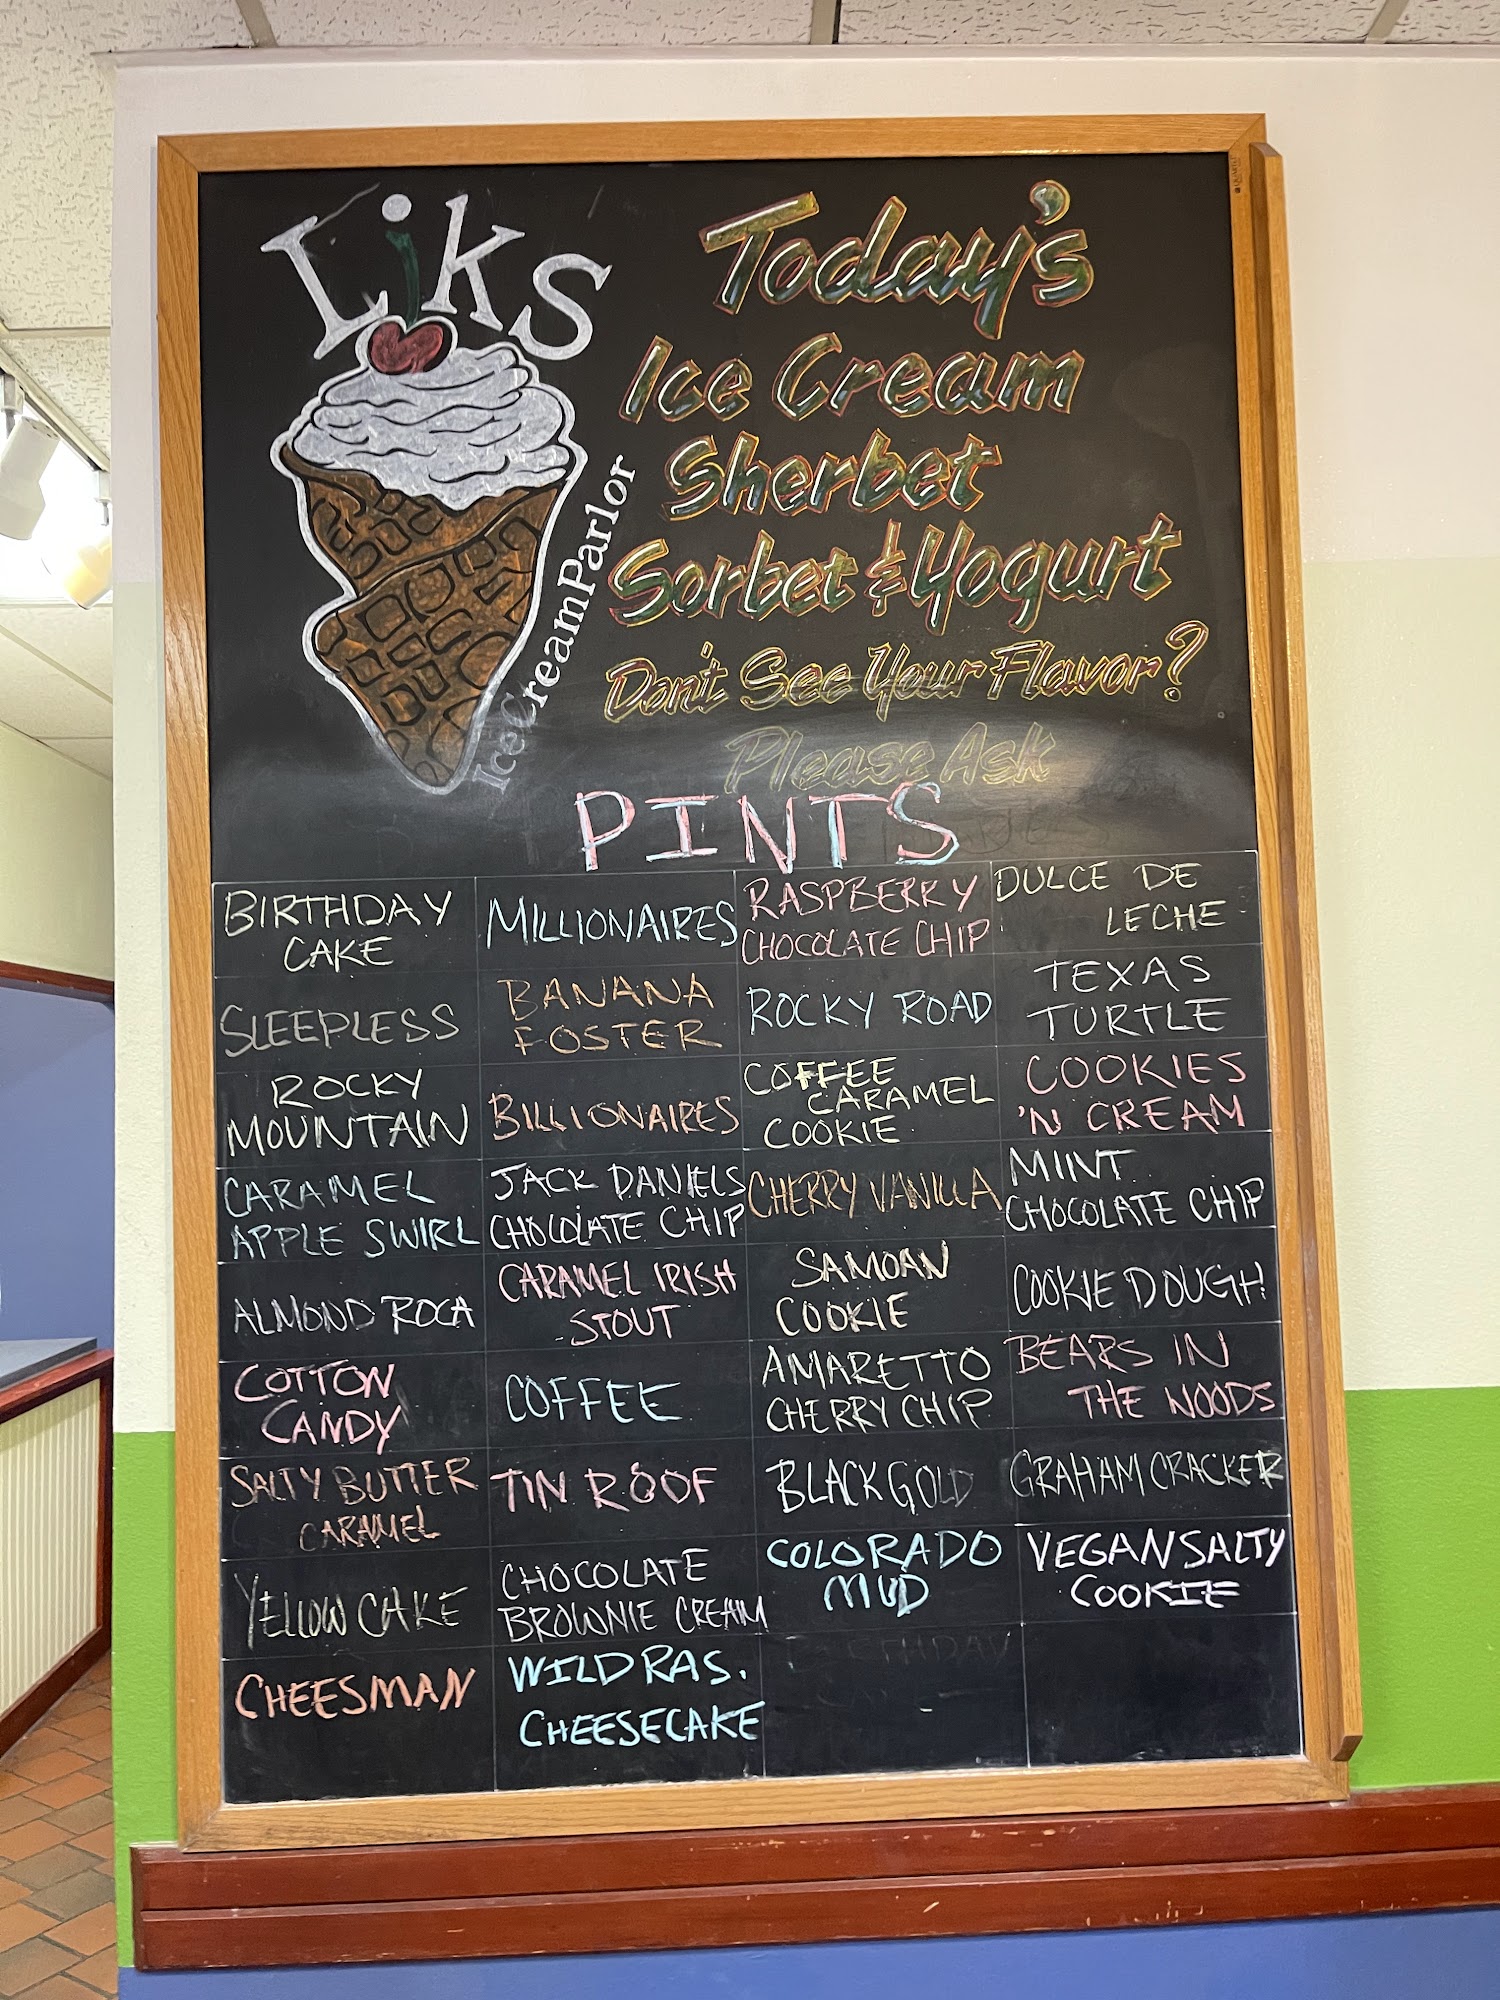 Liks
IceCreamParlor
Today's
Ice Cream
Sherbet
Sorbet & Yogurt
Don't See Your Flavor?
Please Ask
PINTS
BIRTHDAY
CAKE
MILLIONAIRES
RASPBERRY
CHOCOLATE CHIP
DULCE DE
LECHE
SLEEPLESS
BANANA
FOSTER
ROCKY ROAD
TEXAS
TURTLE
ROCKY
MOUNTAIN
BILLIONAIRES
COFFEE
CARAMEL
COOKIE
COOKIES
'N CREAM
CARAMEL
APPLE SWIRL
JACK DANIELS
CHOCOLATE CHIP
CHERRY VANILLA
MINT
CHOCOLATE CHIP
ALMOND ROCA
CARAMEL IRISH
STOUT
SAMOAN
COOKIE
COOKIE DOUGH
COTTON
CANDY
COFFEE
AMARETTO
CHERRY CHIP
BEARS IN
THE WOODS
SALTY BUTTER
CARAMEL
TIN ROOF
BLACK GOLD
GRAHAM CRACKER
YELLOW CAKE
CHOCOLATE
BROWNIE CREAM
COLORADO
MUD
VEGAN SALTY
COOKIE
CHEESMAN
WILD RAS.
CHEESECAKE